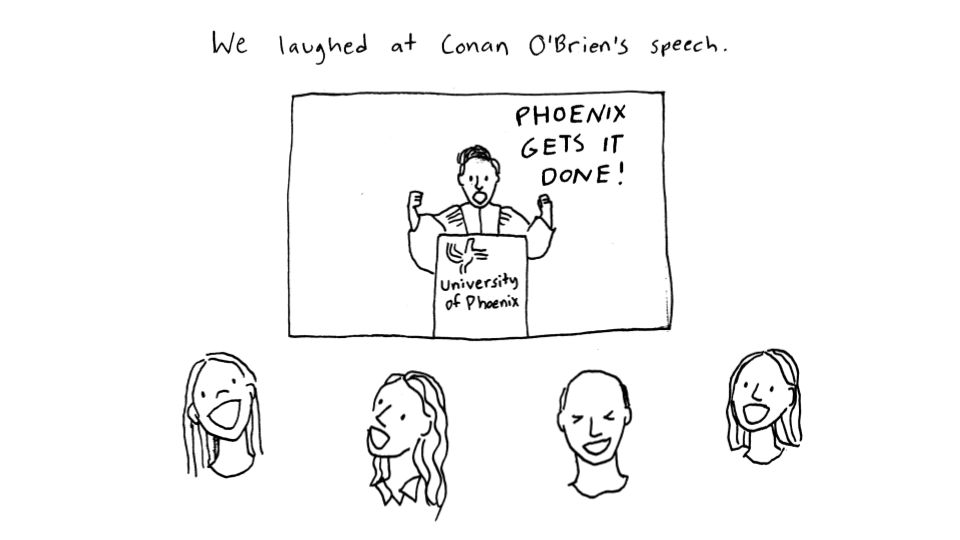 We laughed at Conan O'Brien's speech.
PHOENIX
GETS IT
DONE!
University
of Phoenix